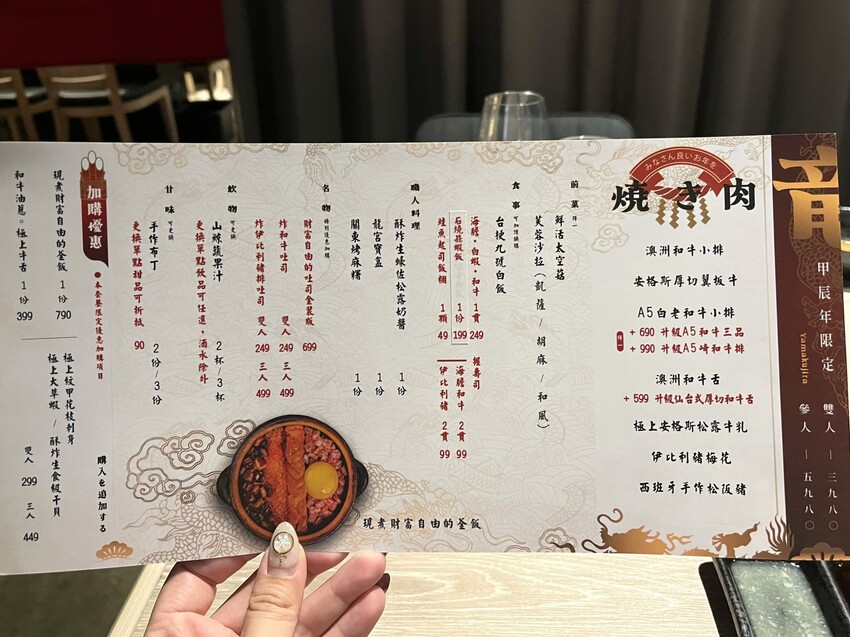 龍
甲辰年限定
yamakujira
雙人 — 三九八〇
參人 — 五九八〇
みなさん良いお年を
焼き肉
澳洲和牛小排
安格斯厚切翼板牛
A5白老和牛小排
擇一
+ 690 升級A5和牛三品
+ 990 升級A5崎和牛排
澳洲和牛舌
+ 599 升級仙台式厚切和牛舌
極上安格斯松露牛乳
伊比利豬梅花
西班牙手作松阪豬
前菜 擇一
鮮活太空菇
芙蓉沙拉(凱薩 / 胡麻 / 和風)
食事 可加價購
台梗九號白飯
海膽・白蝦・和牛 1貫 249
石燒蒜蝦飯 1份 199
鮭魚起司飯糰 1顆 49
握壽司
海膽和牛 2貫 99
伊比利豬 2貫 99
職人料理
酥炸生蠔佐松露奶醬 1份
龍宮寶盒 1份
關東烤麻糬 1份
名物 特別優惠加購
財富自由的吐司金裝版 699
炸和牛吐司 雙人 249 三人 499
炸伊比利豬排吐司 雙人 249 三人 499
飲物 可更換
山辣蔬果汁 2杯/3杯
更換單點飲品可任選，酒水除外
甘味 可更換
手作布丁 2份/3份
更換單點甜品可折抵 90
現煮財富自由的釜飯
加購優惠
● 本套餐限定優惠加購項目
購入を追加する
現煮財富自由的釜飯 1份 790
和牛油蔥。極上牛舌 1份 399
極上紋甲花枝刺身
極上大草蝦 / 酥炸生食級干貝
雙人 299 三人 449